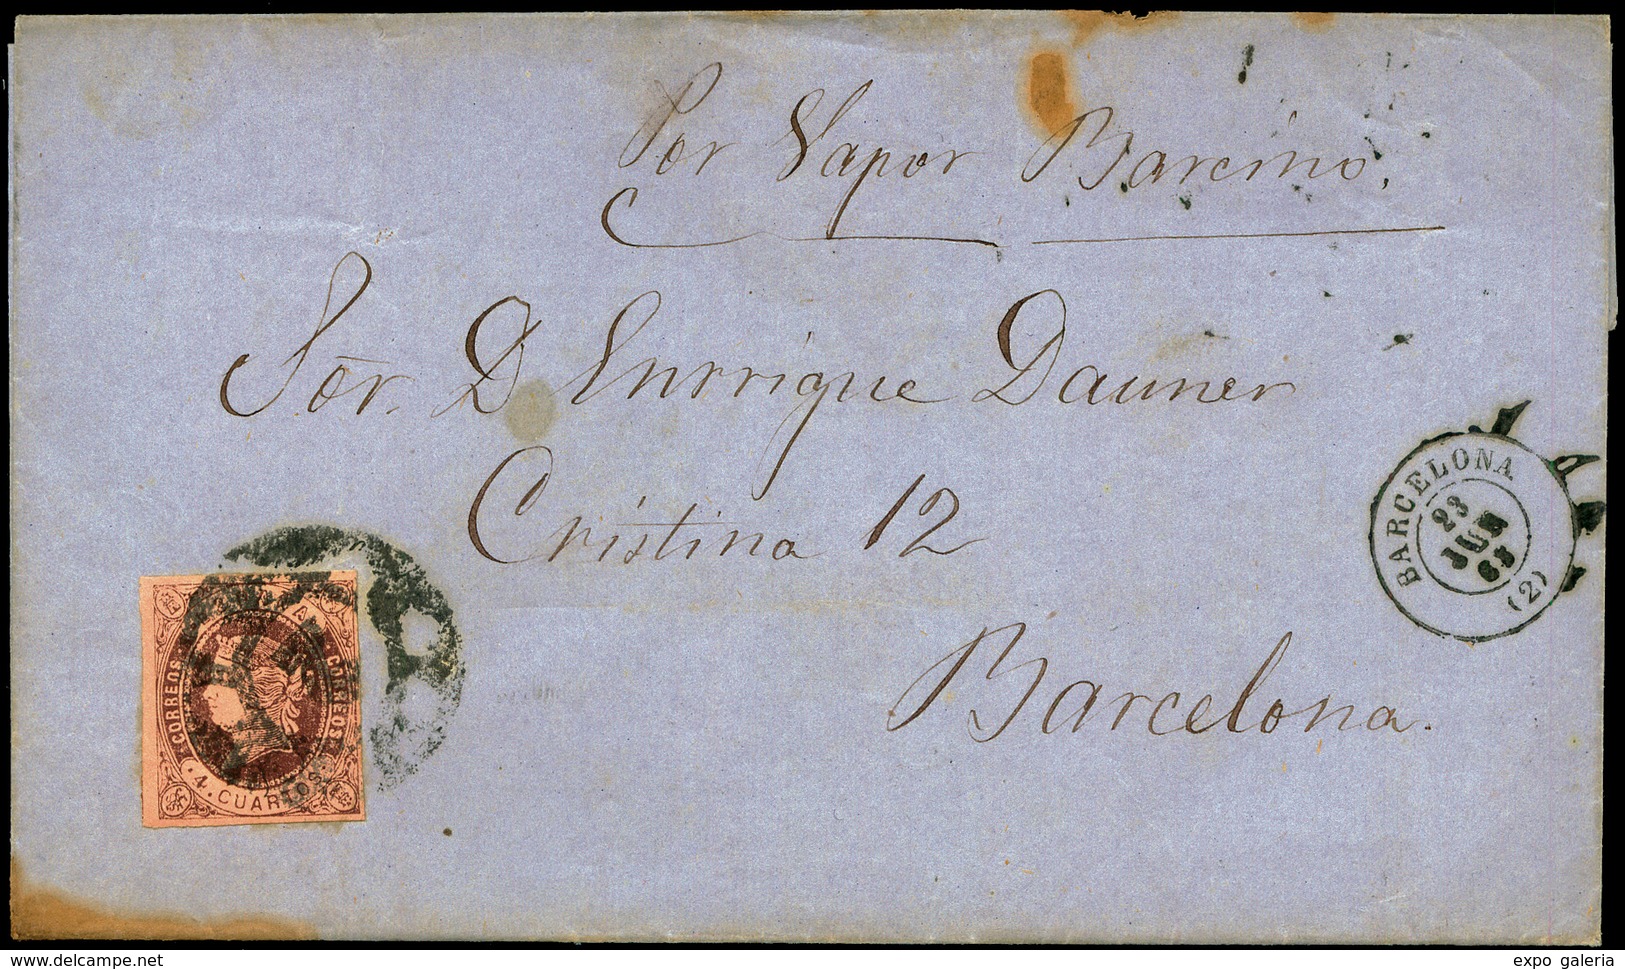 Por Vapor Barcino.
Sör. D Enrrique Dauner
Cristina 12
Barcelona.
BARCELONA
23
JUN
63
(2)
CORREOS
CORREOS
.4. CUARTOS.
delcampe.net
expo galeria